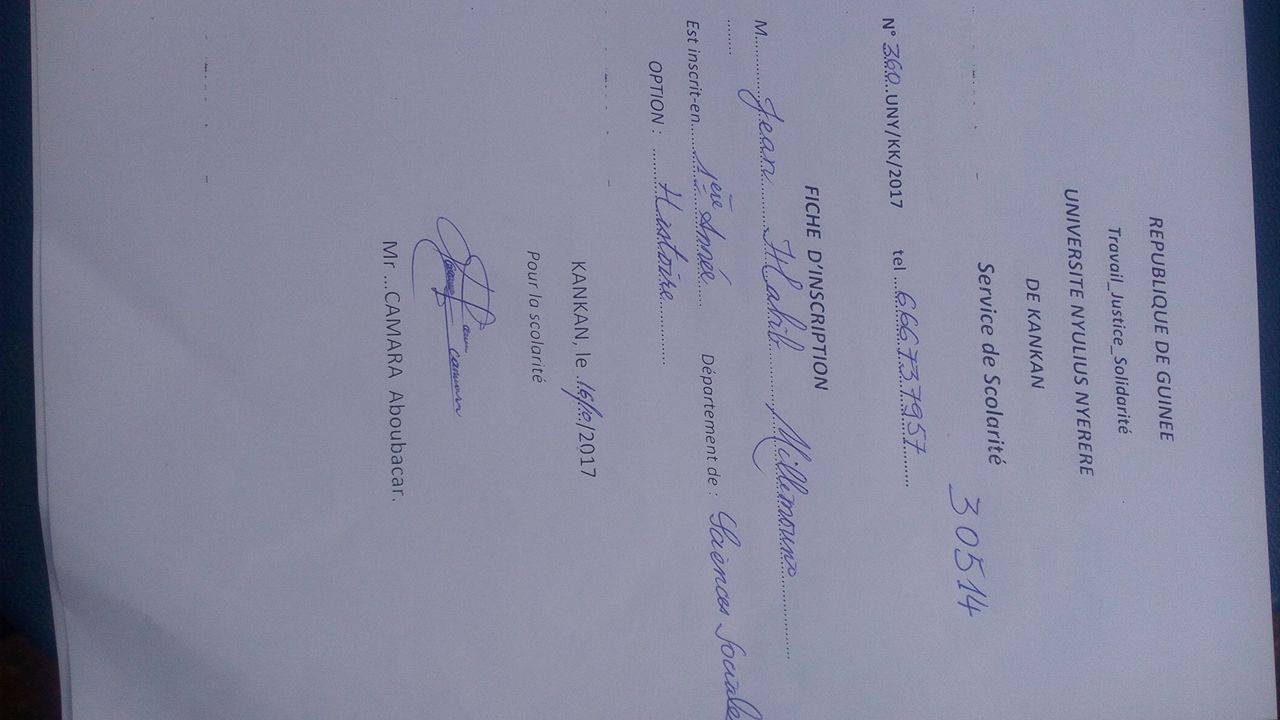 REPUBLIQUE DE GUINEE
Travail_Justice_Solidarité
UNIVERSITE NYULIUS NYERERE
DE KANKAN
Service de Scolarité
30514
N° 360..UNY/KK/2017 tel ...666737957..........
FICHE D'INSCRIPTION
M............Jean......Habib.........Millimouno..................
........
Est inscrit-en......1ère Année..... Département de : Sciences Sociale
OPTION : .........Histoire.............
KANKAN, le .16/10/2017
Pour la scolarité
Mr ...CAMARA Aboubacar.